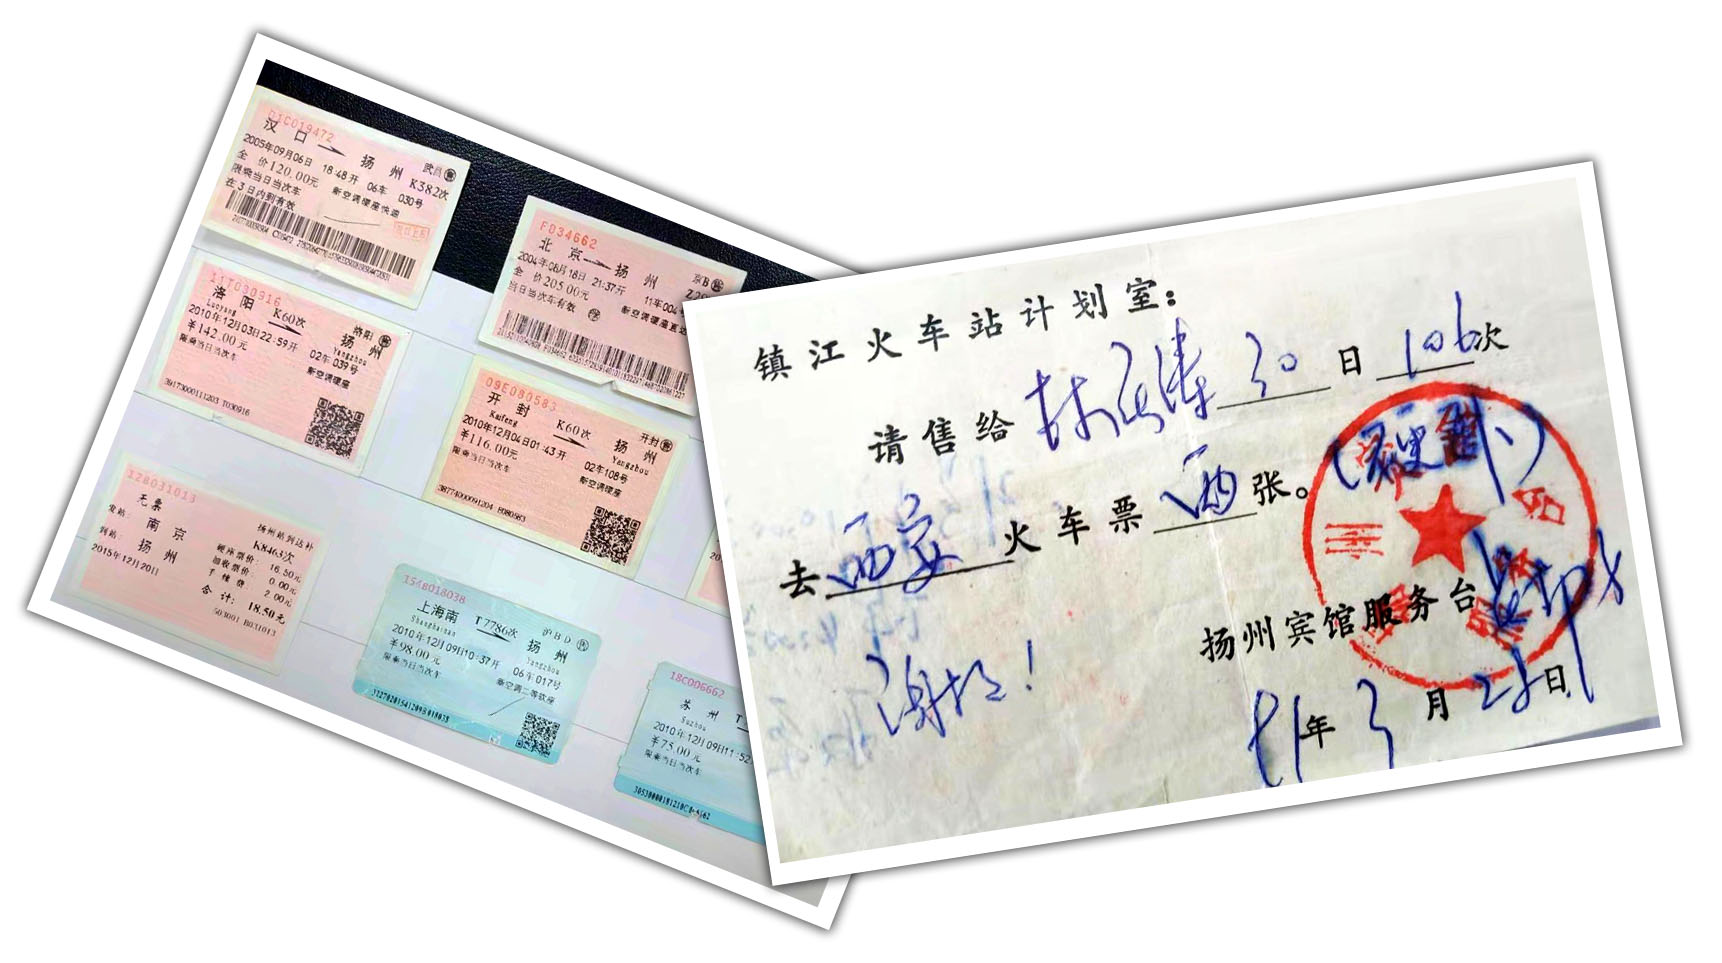 01C019472
汉口 扬州 武昌售
K382次
2005年09月06日 18:48开 06车 030号
全价120.00元 新空调硬座快速
限乘当日当次车
在3日内到有效
F034662
北京 扬州 京B售
2004年08月18日 21:37开 11车00
全价205.00元
当日当次车有效
11T030916
洛阳 K60次 扬州 洛阳售
Luoyang Yangzhou
2010年12月03日22:59开 02车039号
¥142.00元 新空调硬座
限乘当日当次车
3917300011203 T030916
09E080583
开封 K60次 扬州 开封售
Kaifeng Yangzhou
2010年12月04日01:43开 02车108号
¥116.00元 新空调硬座
限乘当日当次车
12B031013
无票 扬州站到达补
发站: 南京 K8463次
到站: 扬州 硬座票价: 16.50元
2015年12月20日 加收票价: 0.00元
手续费: 2.00元
合计: 18.50元
503001 B031013
154B018038
上海南 T7786次 扬州 沪BD售
Shanghainan Yangzhou
2010年12月09日10:37开 06车017号
¥98.00元 新空调二等软座
限乘当日当次车
18C006662
苏州
Suzhou
2010年12月09日11:52
¥75.00元
限乘当日当次车
镇江火车站计划室:
请售给 30日 106次
去西安火车票 两 张。
扬州宾馆服务台
谢谢!
年 3月 28日